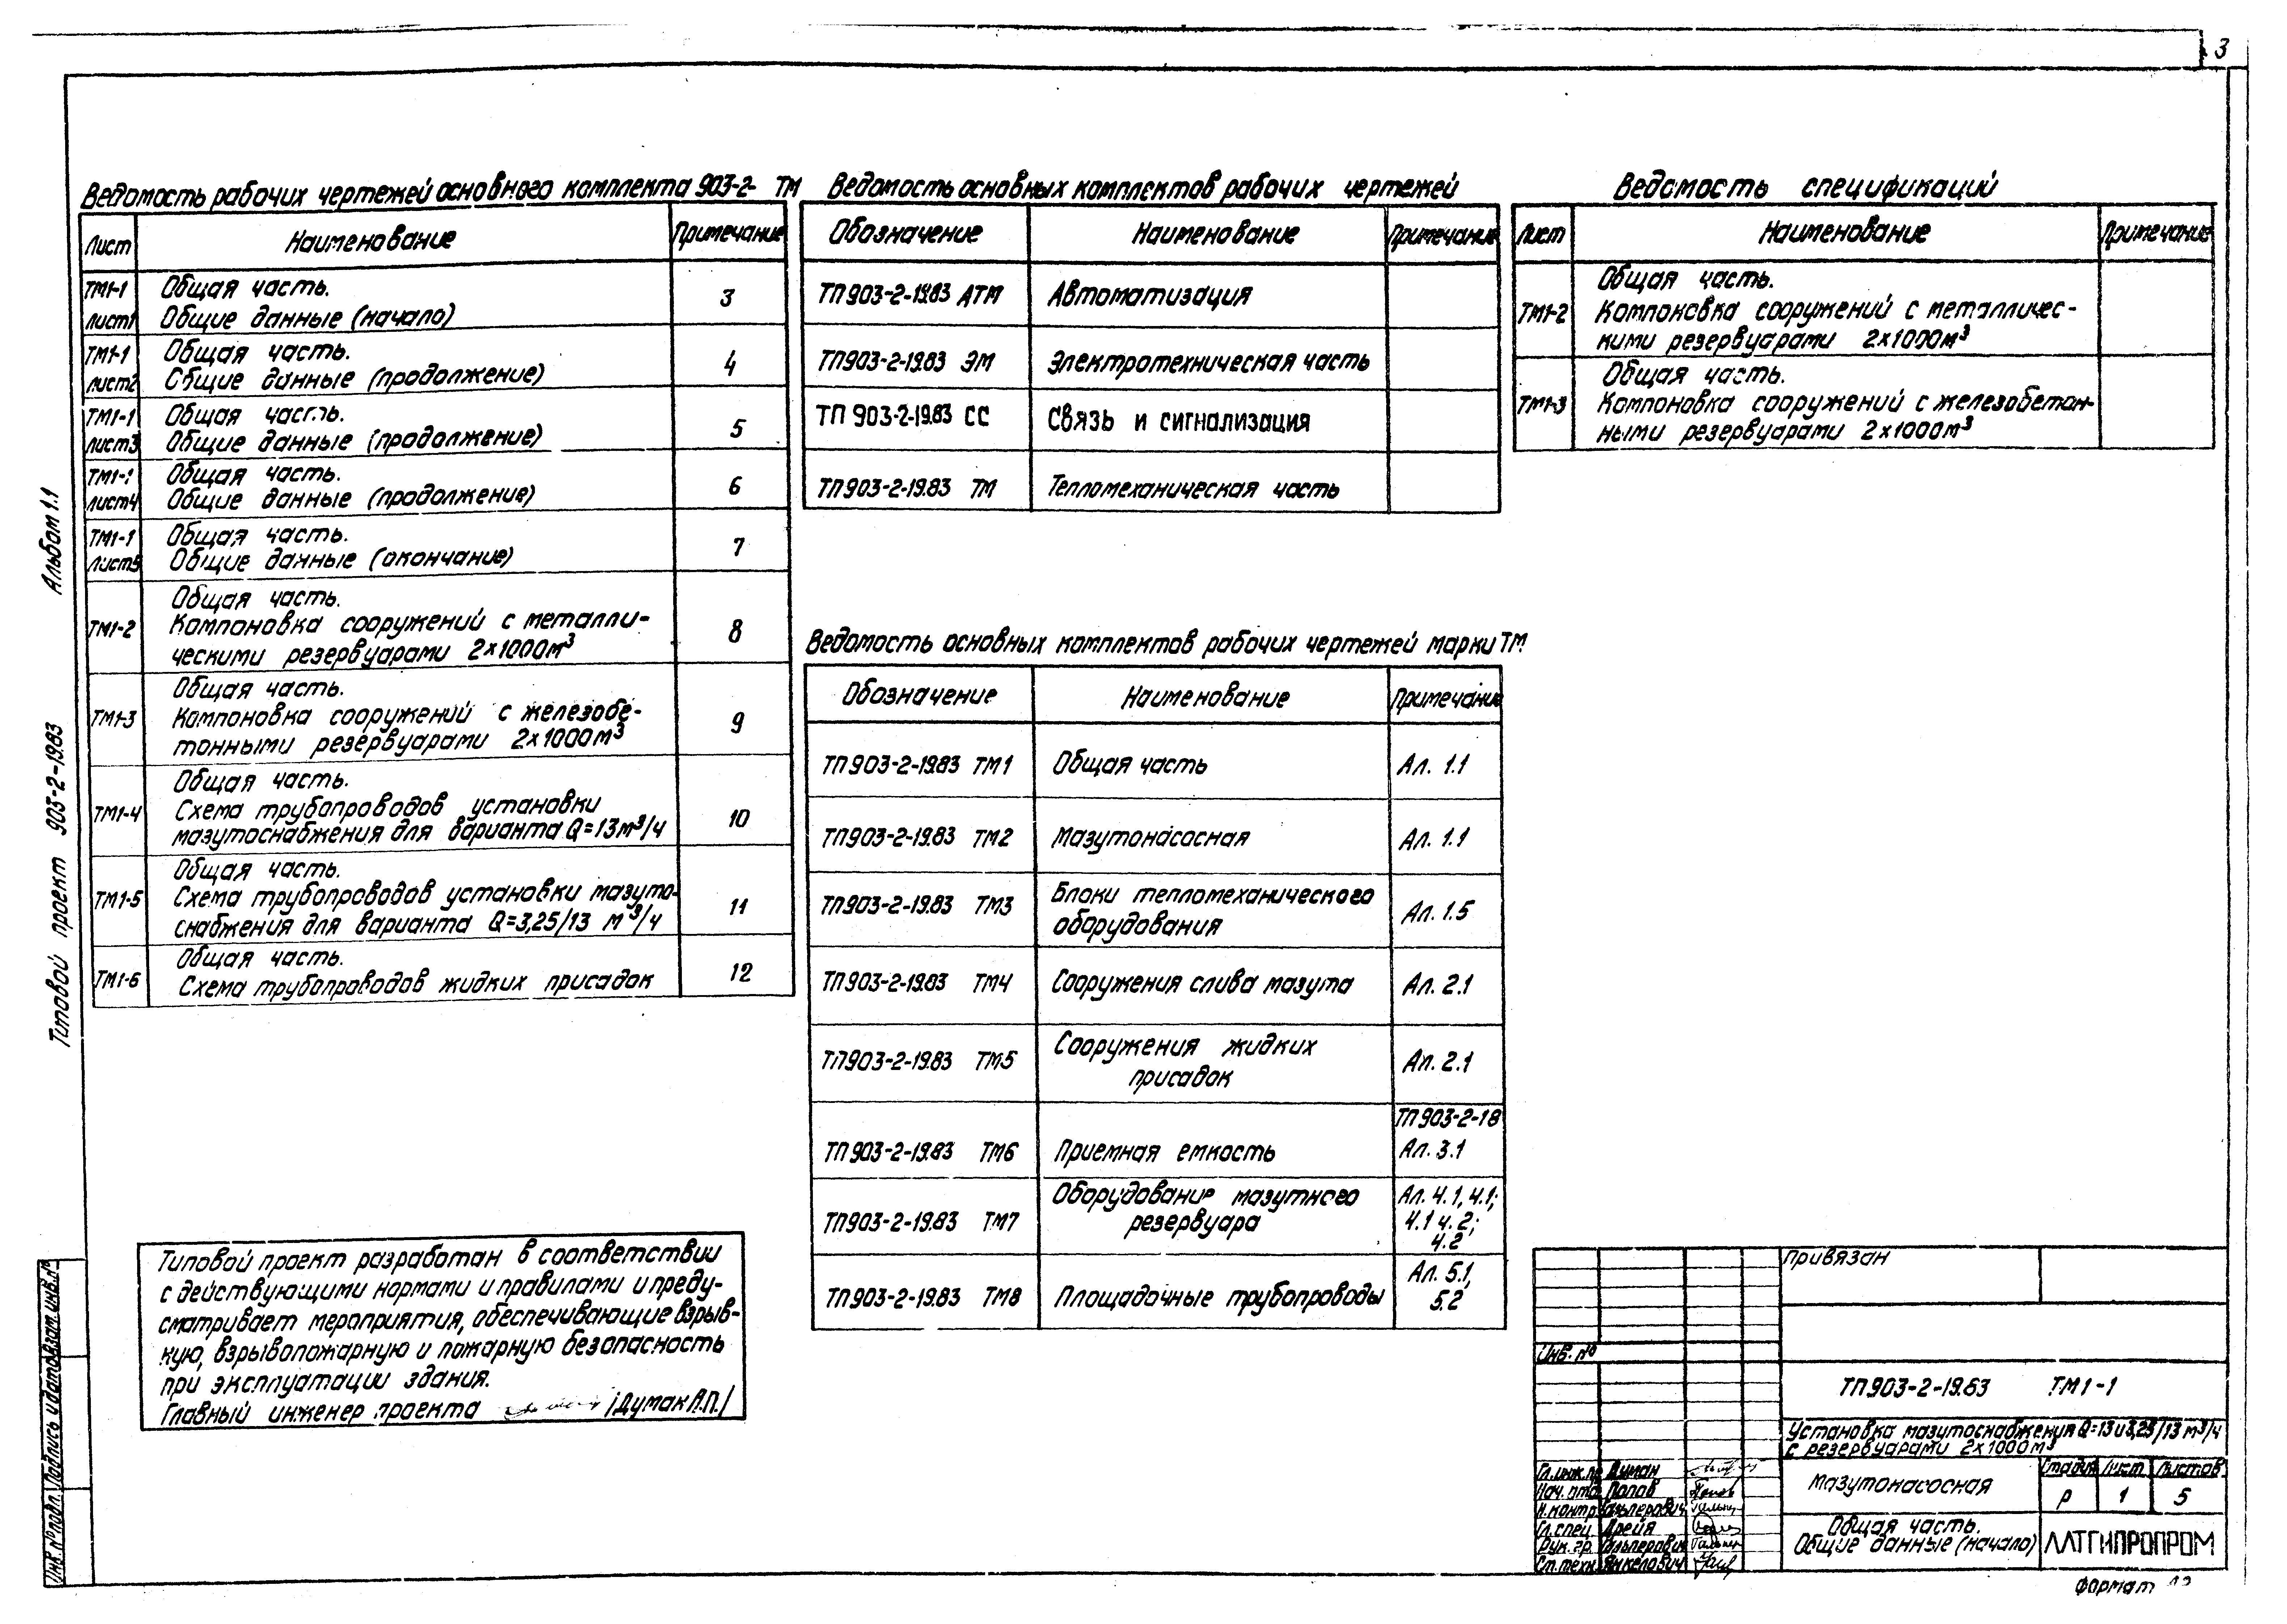 3
Ведомость рабочих чертежей основного комплекта 903-2- ТМ
Лист Наименование Примечание
ТМ1-1 Общая часть.
лист1 Общие данные (начало) 3
ТМ1-1 Общая часть.
лист2 Общие данные (продолжение) 4
ТМ1-1 Общая часть.
лист3 Общие данные (продолжение) 5
ТМ1-1 Общая часть.
лист4 Общие данные (продолжение) 6
ТМ1-1 Общая часть.
лист5 Общие данные (окончание) 7
Общая часть.
ТМ1-2 Компоновка сооружений с металли- 8
ческими резервуарами 2×1000м³
Общая часть.
ТМ1-3 Компоновка сооружений с железобе- 9
тонными резервуарами 2×1000м³
Общая часть.
ТМ1-4 Схема трубопроводов установки 10
мазутоснабжения для варианта Q=13м³/ч
Общая часть.
ТМ1-5 Схема трубопроводов установки мазуто- 11
снабжения для варианта Q=3,25/13 м³/ч
Общая часть.
ТМ1-6 Схема трубопроводов жидких присадок 12
Ведомость основных комплектов рабочих чертежей
Обозначение Наименование Примечание
ТП903-2-19.83 АТМ Автоматизация
ТП903-2-19.83 ЭМ Электротехническая часть
ТП 903-2-19.83 СС Связь и сигнализация
ТП903-2-19.83 ТМ Тепломеханическая часть
Ведомость спецификаций
Лист Наименование Примечание
Общая часть.
ТМ1-2 Компоновка сооружений с металличес-
кими резервуарами 2×1000м³
Общая часть.
ТМ1-3 Компоновка сооружений с железобетон-
ными резервуарами 2×1000м³
Ведомость основных комплектов рабочих чертежей марки ТМ
Обозначение Наименование Примечание
ТП903-2-19.83 ТМ1 Общая часть Ал. 1.1
ТП903-2-19.83 ТМ2 Мазутонасосная Ал. 1.1
ТП903-2-19.83 ТМ3 Блоки тепломеханического
оборудования Ал. 1.5
ТП903-2-19.83 ТМ4 Сооружения слива мазута Ал. 2.1
ТП903-2-19.83 ТМ5 Сооружения жидких
присадок Ал. 2.1
ТП903-2-18
ТП903-2-19.83 ТМ6 Приемная емкость Ал. 3.1
Оборудование мазутного Ал. 4.1, 4.1;
ТП903-2-19.83 ТМ7 резервуара 4.1 4.2;
4.2
Ал. 5.1,
ТП903-2-19.83 ТМ8 Площадочные трубопроводы 5.2
Типовой проект разработан в соответствии
с действующими нормами и правилами и преду-
сматривает мероприятия, обеспечивающие взрыв-
ную, взрывопожарную и пожарную безопасность
при эксплуатации здания.
Главный инженер проекта /Думан А.П./
Альбом 1.1
Типовой проект 903-2-19.83
Инв. №подл. Подпись и дата Взам. инв.№
Привязан
Инв. №
ТП903-2-19.83 ТМ1-1
Установка мазутоснабжения Q=13 и 3,25/13 м³/ч
с резервуарами 2×1000м³
Гл.инж.пр. Думан
Нач. отд. Попов
Н.контр. Гальперович
Гл.спец. Дрейя
Рук. гр. Гальперович
Ст.техн. Янкелович
Мазутонасосная
Стадия Лист Листов
Р 1 5
Общая часть.
Общие данные (начало)
ЛАТГИПРОПРОМ
Формат